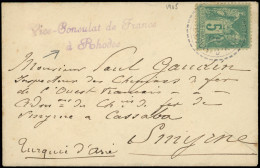 1905
Vice-Consulat de France
à Rhodes
5
Monsieur Paul Gaudin
Inspecteur des Chemins de fer
de l'Ouest Français
Smyrne à Cassaba
Smyrne
Turquie d'Asie